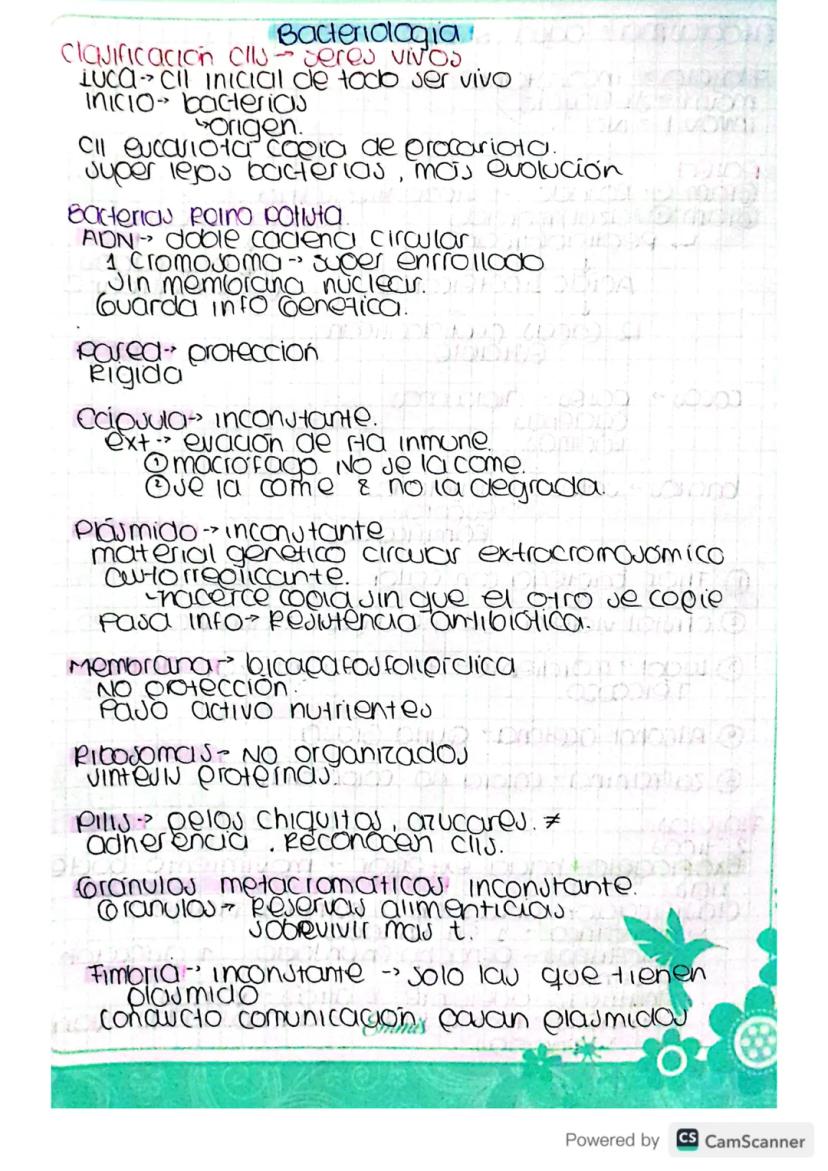 Bacteriologia
Clasificación clls → seres vivos
Luca → cll inicial de todo ser vivo
inicio → bacterias
↳ origen.
Cll eucariota copia de procariota.
super lejos bacterias, más evolución
Bacterias Reino
ADN → doble cadena circular
1 Cromosoma → super enrrollado
Sin membrana nuclear.
Guarda info Genética.
Pared → protección
Rigida
Cápsula → inconstante.
ext → evación de rta inmune.
① macrófago No se la come.
② se la come & no la degrada.
Plásmido → inconstante
material genético circular extracromosómico
autorreplicante.
↳ hacerce copia sin que el otro se copie
Pasa info → Resistencia antibiótica.
Membrana → bicapa fosfolipídica
No protección.
Paso activo nutrientes
Ribosomas → No organizados
sintesis proteínas.
Pilis → pelos chiquitos, azucares. ≠
adherencia. Reconocen clls.
Gránulos metacromáticos inconstante.
Granulos → Reservas alimenticias
sobrevivir mas t.
Fimbria → inconstante → solo las que tienen
plasmido
conducto comunicación, pasan plásmidos
Powered by CS CamScanner